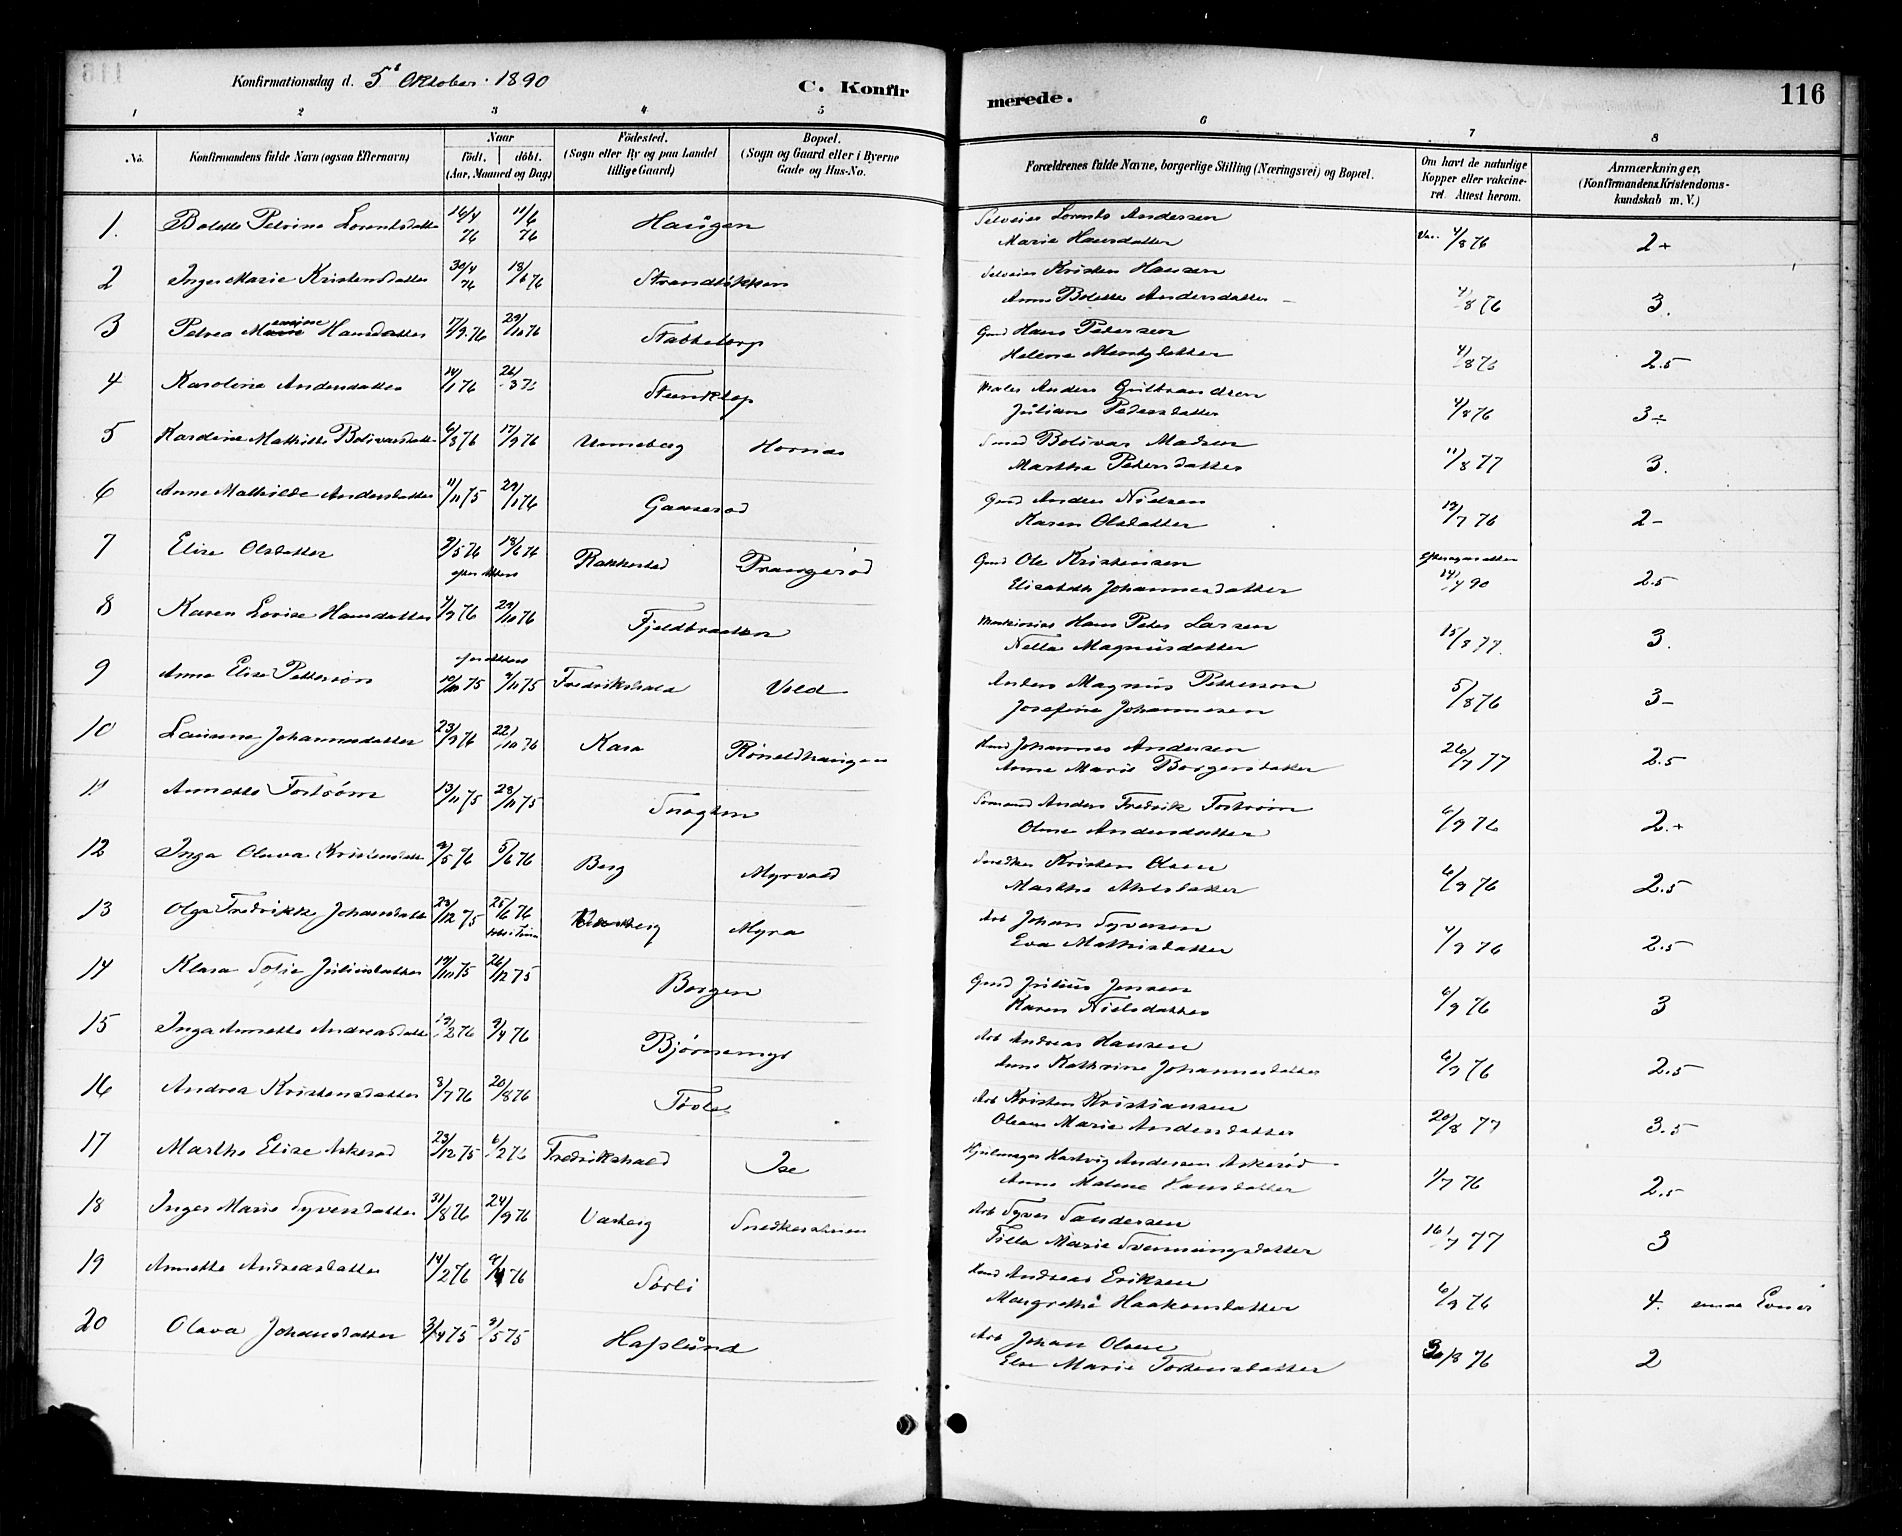 Konfirmationsdag d. 5te Oktober 1890
C. Konfirmerede.
116
1 2 3 4 5 6 7 8
No.
Konfirmandens fulde Navn (ogsaa Efternavn)
Naar
födt. döbt.
(Aar, Maaned og Dag)
Födested.
(Sogn eller By og paa Landet tillige Gaard)
Bopæl.
(Sogn og Gaard eller i Byerne Gade og Hus-No.
Forældrenes fulde Navne, borgerlige Stilling (Næringsvei) og Bopæl.
Om havt de naturlige Kopper eller vakcineret. Attest herom.
Anmærkninger,
(Konfirmandens Kristendomskundskab m. V.)
1. Bolette Petrine Lorentsdatter 16/4 76 11/6 76 Haugen Selveier Lorents Andersen
Marie Hansdatter Vac. 4/8 76 2+
2 Inger Marie Kristensdatter 30/4 76 18/6 76 Strandløkken Selveier Kristen Hansen
Anne Bolette Andersdatter 4/8 76 3.
3 Petrea Maxine Hansdatter 17/9 76 29/10 76 Stabbetorp Gmd Hans Petersen
Helene Mentzdatter 4/8 76 2.5
4 Karoline Andersdatter 14/1 76 26/3 76 Maler Anders Gulbrandsen
Juliane Pedersdatter 4/8 76 3÷
5 Kardine Mathilde Bolivarsdatter 6/8 76 17/9 76 Unneberg Hornæs Smed Bolivar Madsen
Marthe Petersdatter 11/8 77 3.
6 Anne Mathilde Andersdatter 11/11 75 29/1 76 Gaaserød Gmd Anders Nielsen
Karen Olsdatter 12/7 76 2-
7 Elise Olsdatter 9/5 76 18/6 76 Rakkestad Prangerød Gmd Ole Kristensen
efter Attest Elisabeth Johannesdatter 14/7 90 2.5
8 Karen Lovise Hansdatter 4/9 76 29/10 76 Fjeldbraaten Hans Peter Larsen
Nella Magnusdatter 15/8 77. 3.
9 Anne Elise Petterson 10/10 75 9/11 75 Fredrikshald Vold Anders Magnus Petterson
efter Attest Josefine Johannesen 5/8 76 3-
10 Laurine Johannesdatter 23/9 76 22/10 76 Kasa Johannes Andersen
Anne Marie Borgersdatter 26/7 77 2.5
11 Annette Fostrøm 13/11 75 28/11 75 Sømand Anders Fredrik Fostrøm
Oline Andersdatter 6/9 76 2.+
12 Inga Olava Kristensdatter 9/5 76 5/6 76 Berg Myrvold Snedker Kristen Olsen
Marthe 6/9 76 2.5
13 Olga Fredrikke Johansdatter 23/12 75 25/6 76 Myra Arb Johan Syversen
Eva Mathisdatter 4/9 76 2.5
14 Klara Sofie Juliusdatter 19/11 75 26/12 75 Borgen Gmd Julius Jensen
Karen Nielsdatter 6/9 76 3
15 Inga Annette Andreasdatter 19/2 76 9/4 76 Bjørnemyr Arb Andreas Hansen
Anne Kathrine Johannesdatter 6/9 76 2.5
16 Andrea Kristensdatter 8/7 76 20/8 76 Arb Kristen Kristiansen
Oleane Marie Andersdatter 20/8 77 3.5
17 Marthe Elise Askerød 23/12 75 6/2 76 Fredrikshald Ise Hjulmager Hartvig Andersen Askerød
Anne Malene Hansdatter 4/7 76 2.5
18 Inger Marie Syversdatter 31/8 76 24/9 76 Varberg Arb Syver Sandersen
Tilla Marie Svenningsdatter 16/7 77 3
19 Annette Andreasdatter 14/2 76 9/4 76 Sørli Andreas Eriksen
Margrethe Haakonsdatter 6/9 76 4. smaa Evner
20 Olava Johansdatter 3/4 75 9/5 75 Hafslund Arb Johan Olsen
Else Marie Torkensdatter 30/8 76 2